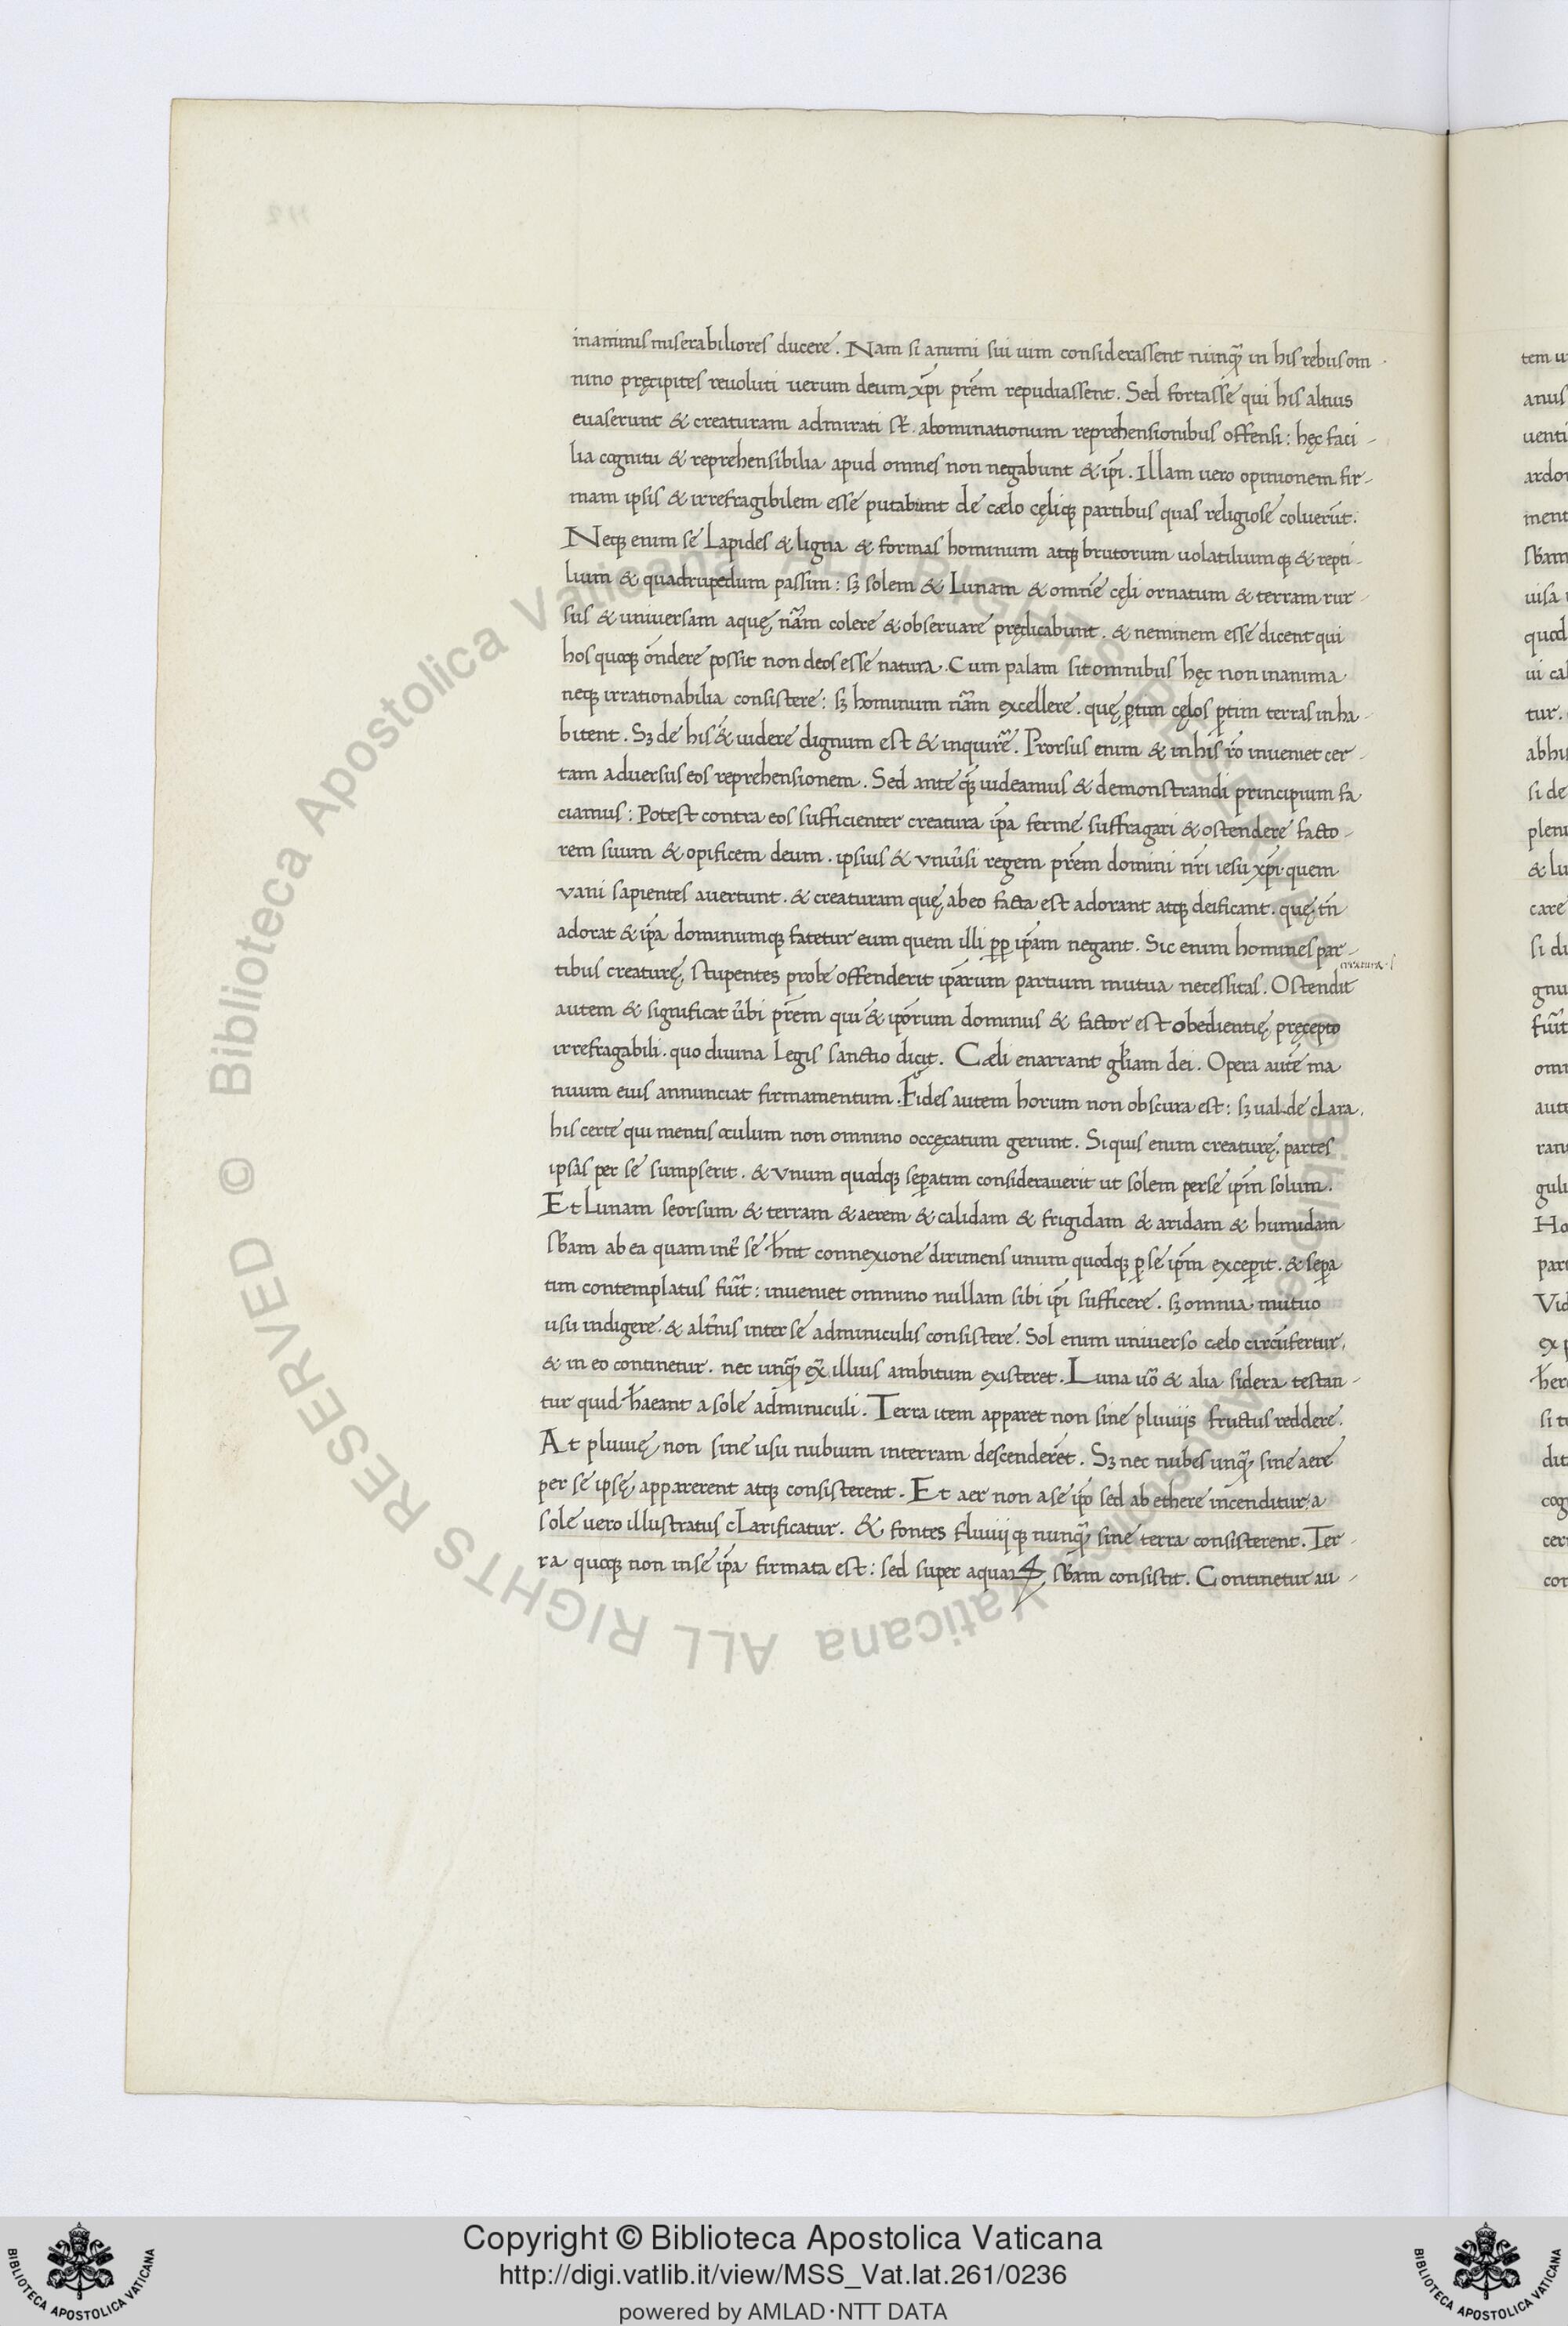 inanimis miserabiliores ducere. Nam si animi sui uim considerassent nunq̃ in his rebus om-
nino pręcipites reuoluti uerum deum xp̃i pr̃em repudiassent. Sed fortasse qui his altius
euaserunt & creaturam admirati st̃. abominationum reprehensionibus offensi: hęc faci-
lia cognitu & reprehensibilia apud omnes non negabunt & ip̃i. Illam uero opinionem fir-
mam ipsis & irrefragibilem esse putabunt de cælo cęliq; partibus quas religiose coluerũt.
Neq; enim se Lapides & ligna & formas hominum atq; brutorum uolatilium q; & repti-
lium & quadrupedum passim: sꝫ solem & Lunam & omnẽ cęli ornatum & terram rur-
sus & uniuersam aquę nãm colere & obseruare prędicabunt. & neminem esse dicent qui
hos quoq; õndere possit non deos esse natura. Cum palam sit omnibus hęc non inanima
neq; irrationabilia consistere: sꝫ hominum nãm excellere. quę ꝑtim cęlos ꝑtim terras inha-
bitent. Sꝫ de his & uidere dignum est & inquirẽ. Prorsus enim & in his rõ inueniet cer-
tam aduersus eos reprehensionem. Sed ante q̃ uideamus & demonstrandi principium fa
ciamus: Potest contra eos sufficienter creatura ip̃a ferme suffragari & ostendere facto-
rem suum & opificem deum. ipsius & vniũsi regem pr̃em domini nr̃i iesu xp̃i quem
vani sapientes auertunt. & creaturam quę ab eo facta est adorant atq; deificant. quę tñ
adorat & ip̃a dominumq; fatetur eum quem illi ꝓꝑ ip̃am negant. Sic enim homines par-
tibus creaturę stupentes probe offenderit ip̃arum partium mutua necessitas. Ostendit
creatura
autem & significat ũbi pr̃em qui & ip̃orum dominus & factor est obedientię pręcepto
irrefragabili. quo diuina Legis sanctio dicit. Cæli enarrant gl̃iam dei. Opera autẽ ma
nuum eius annunciat firmamentum. Fides autem horum non obscura est: sꝫ ualde clara
his certe qui mentis oculum non omnino occęcatum gerunt. Si quis enim creaturę partes
ipsas per se sumpserit. & vnum quodq; seꝑatim considerauerit ut solem per se ip̃m solum.
Et Lunam seorsum & terram & aerem & calidam & frigidam & aridam & humidam
sb̃am ab ea quam int̃ se hñt connexione dirimens unum quodq; ꝑ se ip̃m exceꝑit. & seꝑa
tim contemplatus fũit: inueniet omnino nullam sibi ip̃i sufficere. sꝫ omnia mutuo
usu indigere. & alt̃nis inter se adminiculis consistere. Sol enim uniuerso cælo circũfertur,
& in eo continetur. nec unq̃ ex̃ illius ambitum existeret. Luna ũo & alia sidera testan-
tur quid hãeant a sole adminiculi. Terra item apparet non sine pluuijs fructus reddere.
At pluuię non sine usu nubium in terram descenderẽt. Sꝫ nec nubes unq̃ sine aere
per se ipsę apparerent atq; consisterent. Et aer non a se ip̃o sed ab ethere incenditur, a
sole uero illustratus clarificatur. & fontes fluuijq; nunq̃ sine terra consisterent. Ter-
ra quoq; non in se ip̃a firmata est: sed super aquaꝝ sb̃am consistit. Continetur au-
Copyright © Biblioteca Apostolica Vaticana
http://digi.vatlib.it/view/MSS_Vat.lat.261/0236
powered by AMLAD·NTT DATA